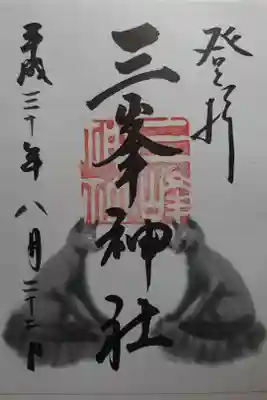 登拝
三峯神社
平成三十年八月二十二日